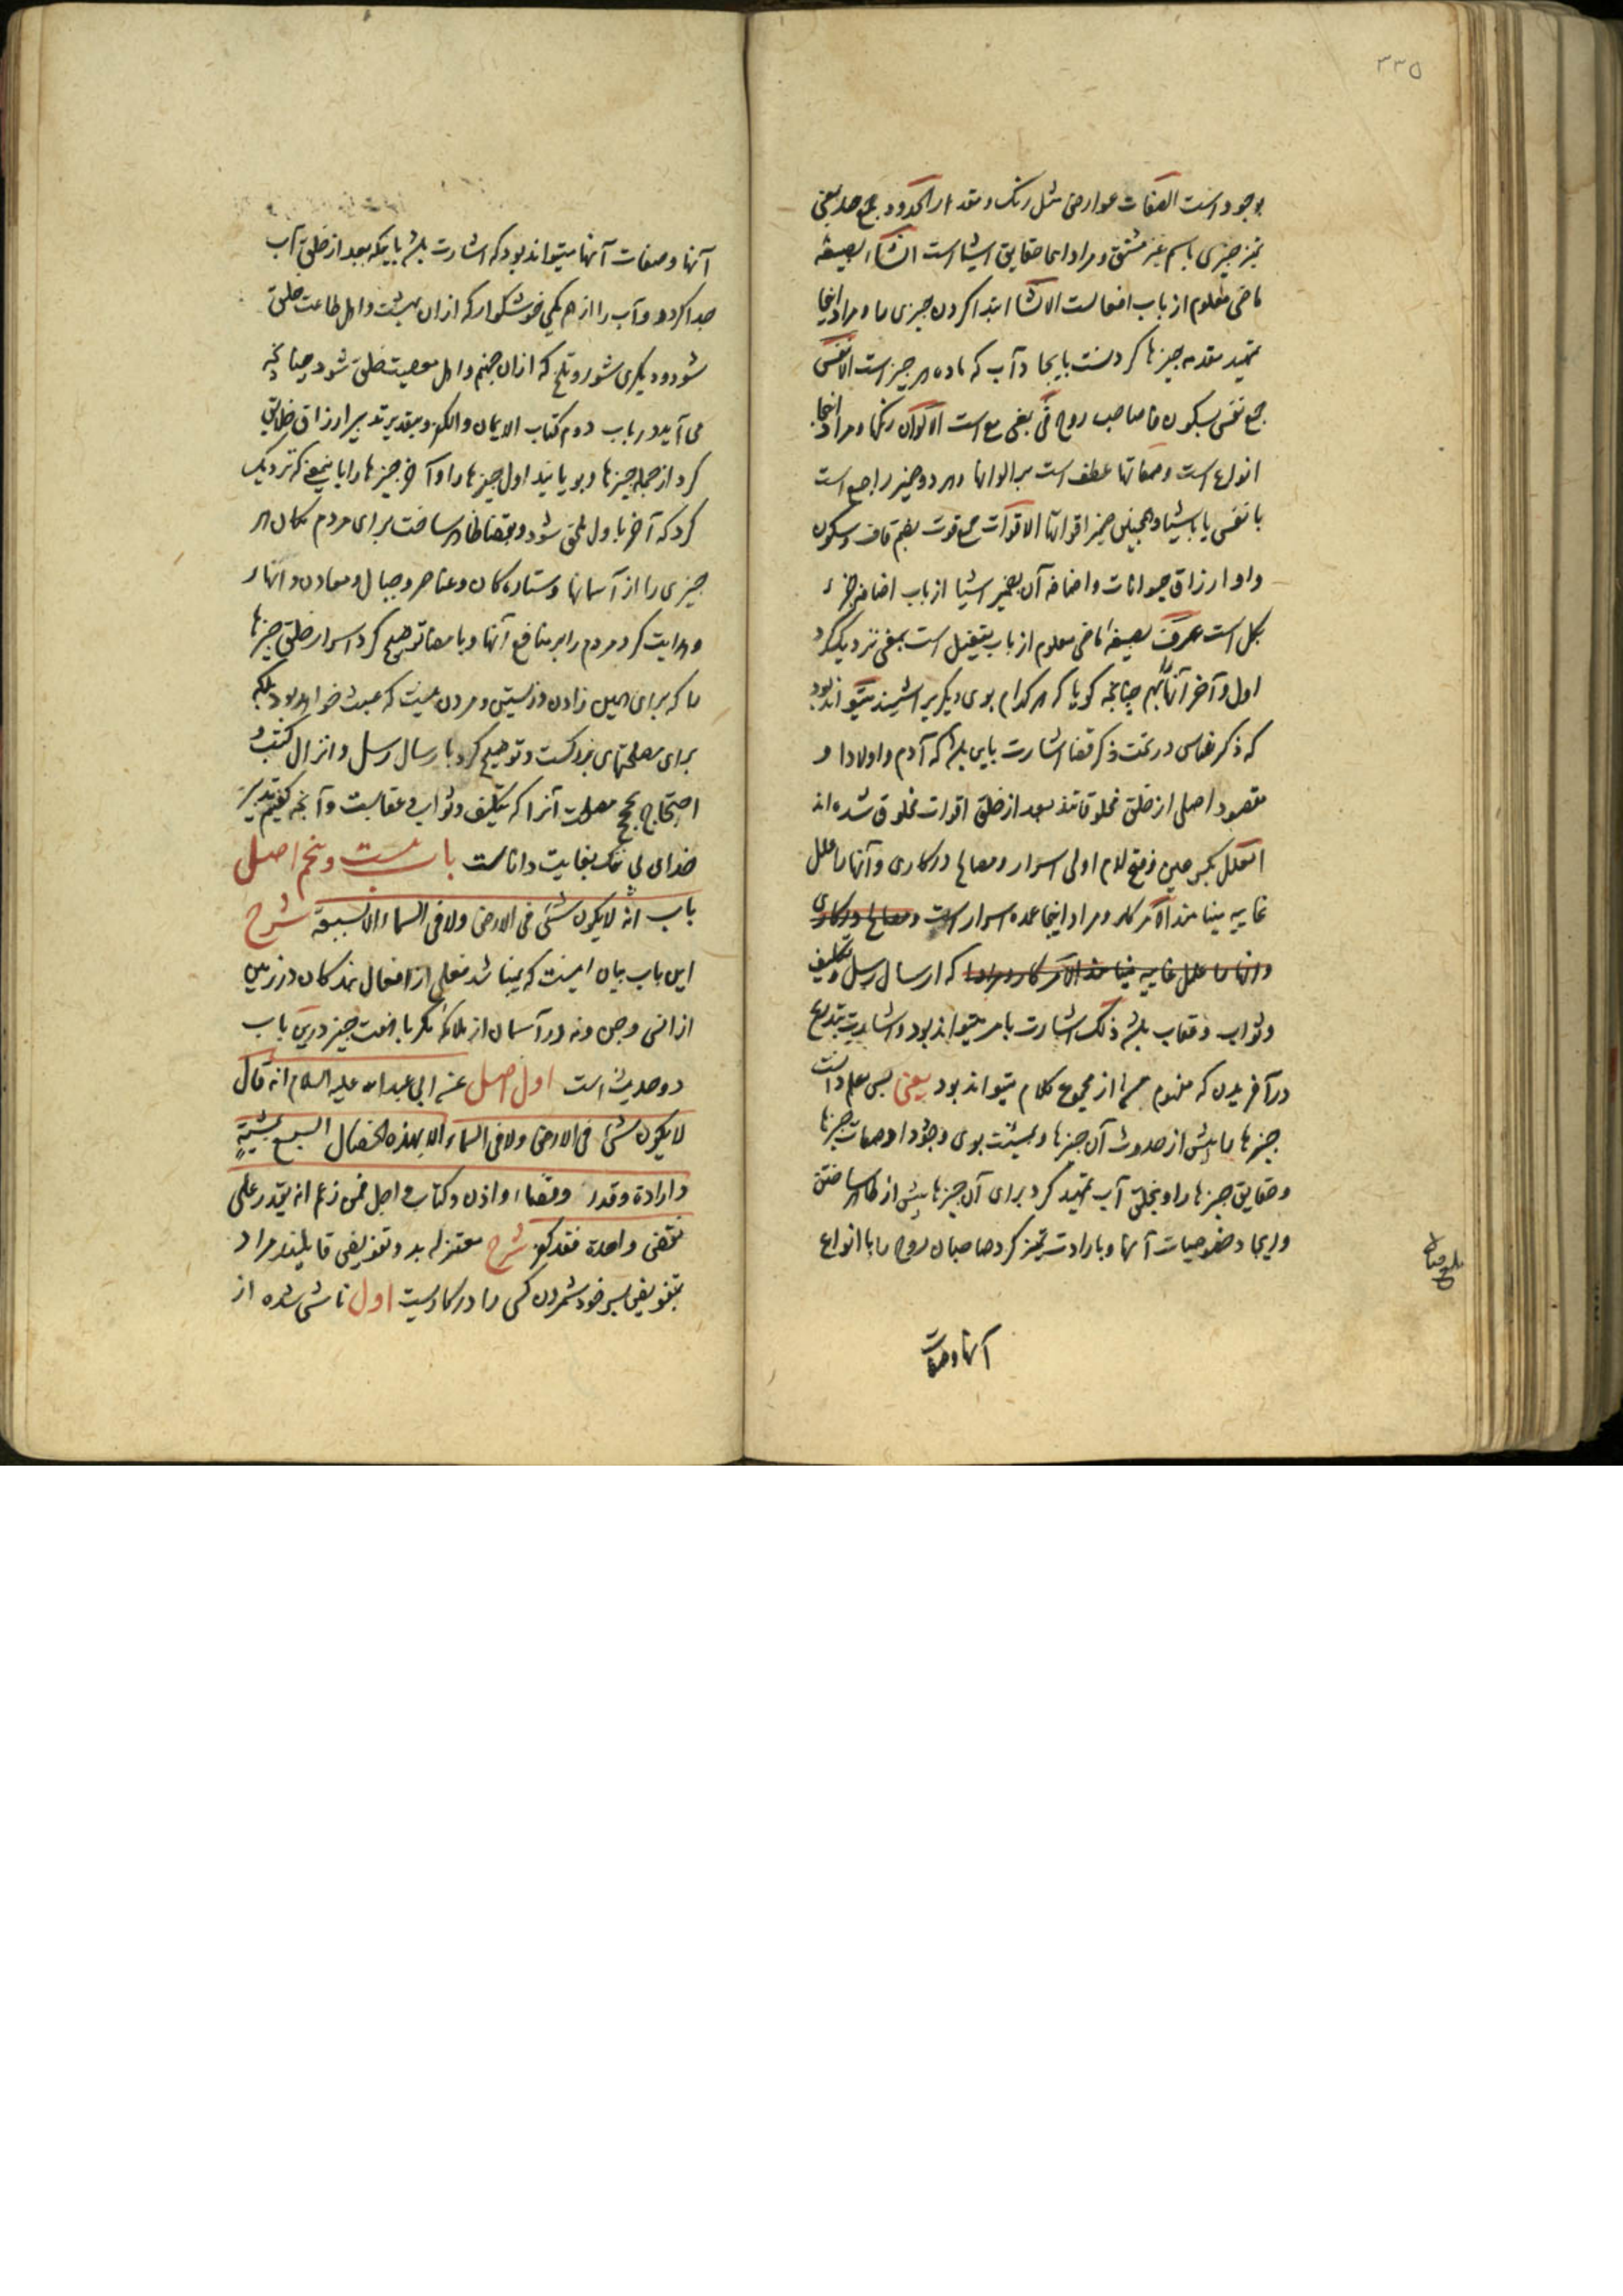 ۳۳۵
بوجود است الصفات عوارض مثل رنک و مقدار الحدود جمع حد بمعنی
تمیز چیزی باسم غیر مشتق و مراد اینجا حقایق اشیا است انشأ بصیغه
ماضی معلوم از باب افعالست الانشا ابتدا کردن چیزی را و مراد اینجا
تمهید مقدمه چیزها کردنست بایجاد آب که ماده هر چیز است الانفس
جمع نفس بسکون فا صاحب روح فی بمعنی مع است الالوان رنکها و مراد اینجا
انواع است و صفاتها عطف است بر الوانها و هر دو ضمیر راجع است
بانفس یا باشیا و همچنین ضمیر اقواتها الاقوات جمع قوت بضم قاف و سکون
واو ارزاق حیوانات و اضافه آن بضمیر اشیا از باب اضافه جزء
بکل است عرف بصیغه ماضی معلوم از باب تفعیل است بمعنی نزدیک کرد
اول و آخر آنها را بهم چنانچه کویا که هر کدام بوی دیکری را شنید میتواند بود
که ذکر ناس در تحت ذکر قضا اشارت باین باشد که آدم و اولاد او
مقصود اصلی از خلق مخلوقاتند بعد از خلق اقوات مخلوق شده اند
العلل بکسر عین و فتح لام اولی اسرار و مصالح در کاری و آنها را علل
غاییه مینامند الامر کار و مراد اینجا عمده اسرار است و مصالح در کاری
و انها را علل غاییه مینامند الامر کار و مراد که ارسال رسل و تکلیف
و ثواب و عقاب باشد ذلک اشارت بامر میتواند بود و اشارت بتدریج
در آفریدن که مفهوم از مجموع کلام میتواند بود یعنی پس بعلم دانست
چیزها را پیش از حدوث آن چیزها و بمشیت بوی وجود او صفات چیزها
و حقایق چیزها را و بخلق آب تمهید کرد برای آن چیزها پیش از ظاهر ساختن
و ایجاد خصوصیات آنها و بارادت تمیز کرد صاحبان روح را با انواع
آنها و صفات
آنها و صفات آنها میتواند بود که اشارت باشد باینکه بعد از خلق آب
جدا کرد دو آب را از هم یکی خوشکوار که ازان بهشت و اهل طاعت خلق
شود و دیکری شور و تلخ که ازان جهنم و اهل معصیت خلق شود چنانچه
می آید در باب دوم کتاب الایمان و الکفر و بتقدیر تدبیر ارزاق خلایق
کرد از جمله چیزها و بویانید اول چیزها را و آخر چیزها را باینمعنی که نزدیک
کرد که آخر باول ملحق شود و بقضا ظاهر ساخت برای مردم مکان هر
چیزی را از آسمانها و ستاره کان و عناصر و جبال و معادن و انهار
و هدایت کرد مردم را بر منافع آنها و بامضا توضیح کرد اسرار خلق چیزها
را که برای همین زادن و زیستن و مردن نیست که عبث خواهد بود بلکه
برای مصلحتهای بزرکست و توضیح کرد بارسال رسل و انزال کتب و
احتجاج بحجج مصلحت آنرا که تکلیف و ثواب و عقابست و آنچه کفتیم تدبیر
خدای بی ننک بغایت داناست باب بیست و پنجم اصل
باب انه لایکون شئ فی الارض ولا فی السماء الا بسبعة شرح
این باب بیان اینست که نمیباشد فعلی از افعال بندکان در زمین
از انس و جن و نه در آسمان از ملائکه مکر با هفت چیز درین باب
دو حدیث است اول اصل عن ابی عبد الله علیه السلام انه قال
لا یکون شئ فی الارض ولا فی السماء الا بهذه الخصال السبع بمشیة
و ارادة و قدر و قضاء و اذن و کتاب و اجل فمن زعم انه یقدر علی
نقض واحدة فقد کفر شرح معتزله بدو تفویض قایلند مراد
بتفویض سر خود شمردن کسی را در کاریست اول ناشی شده از